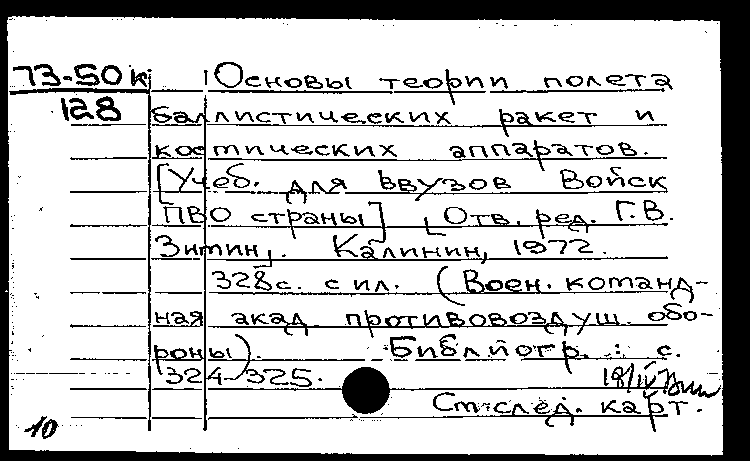 73-50к Основы теории полета
128 баллистических ракет и
космических аппаратов.
[Учеб. для ввузов Войск
ПВО страны] ⌊Отв. ред. Г.В.
Зимин⌋. Калинин, 1972.
328с. с ил. (Воен. команд-
ная акад. противовоздуш. обо-
роны). Библиогр.: с.
324-325.
См. след. карт.
10